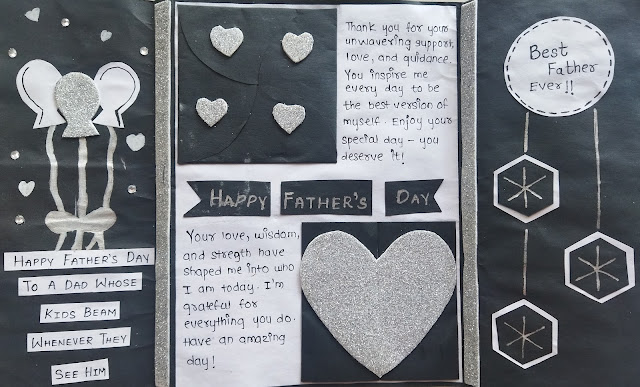 HAPPY FATHER'S DAY
TO A DAD WHOSE
KIDS BEAM
WHENEVER THEY
SEE HIM
Thank you for your
unwavering support,
love, and guidance.
You inspire me
every day to be
the best version of
myself. Enjoy your
special day - you
deserve it!
HAPPY FATHER'S DAY
Your love, wisdom,
and stregth have
shaped me into who
I am today. I'm
grateful for
everything you do.
Have an amazing
day!
Best
Father
Ever!!